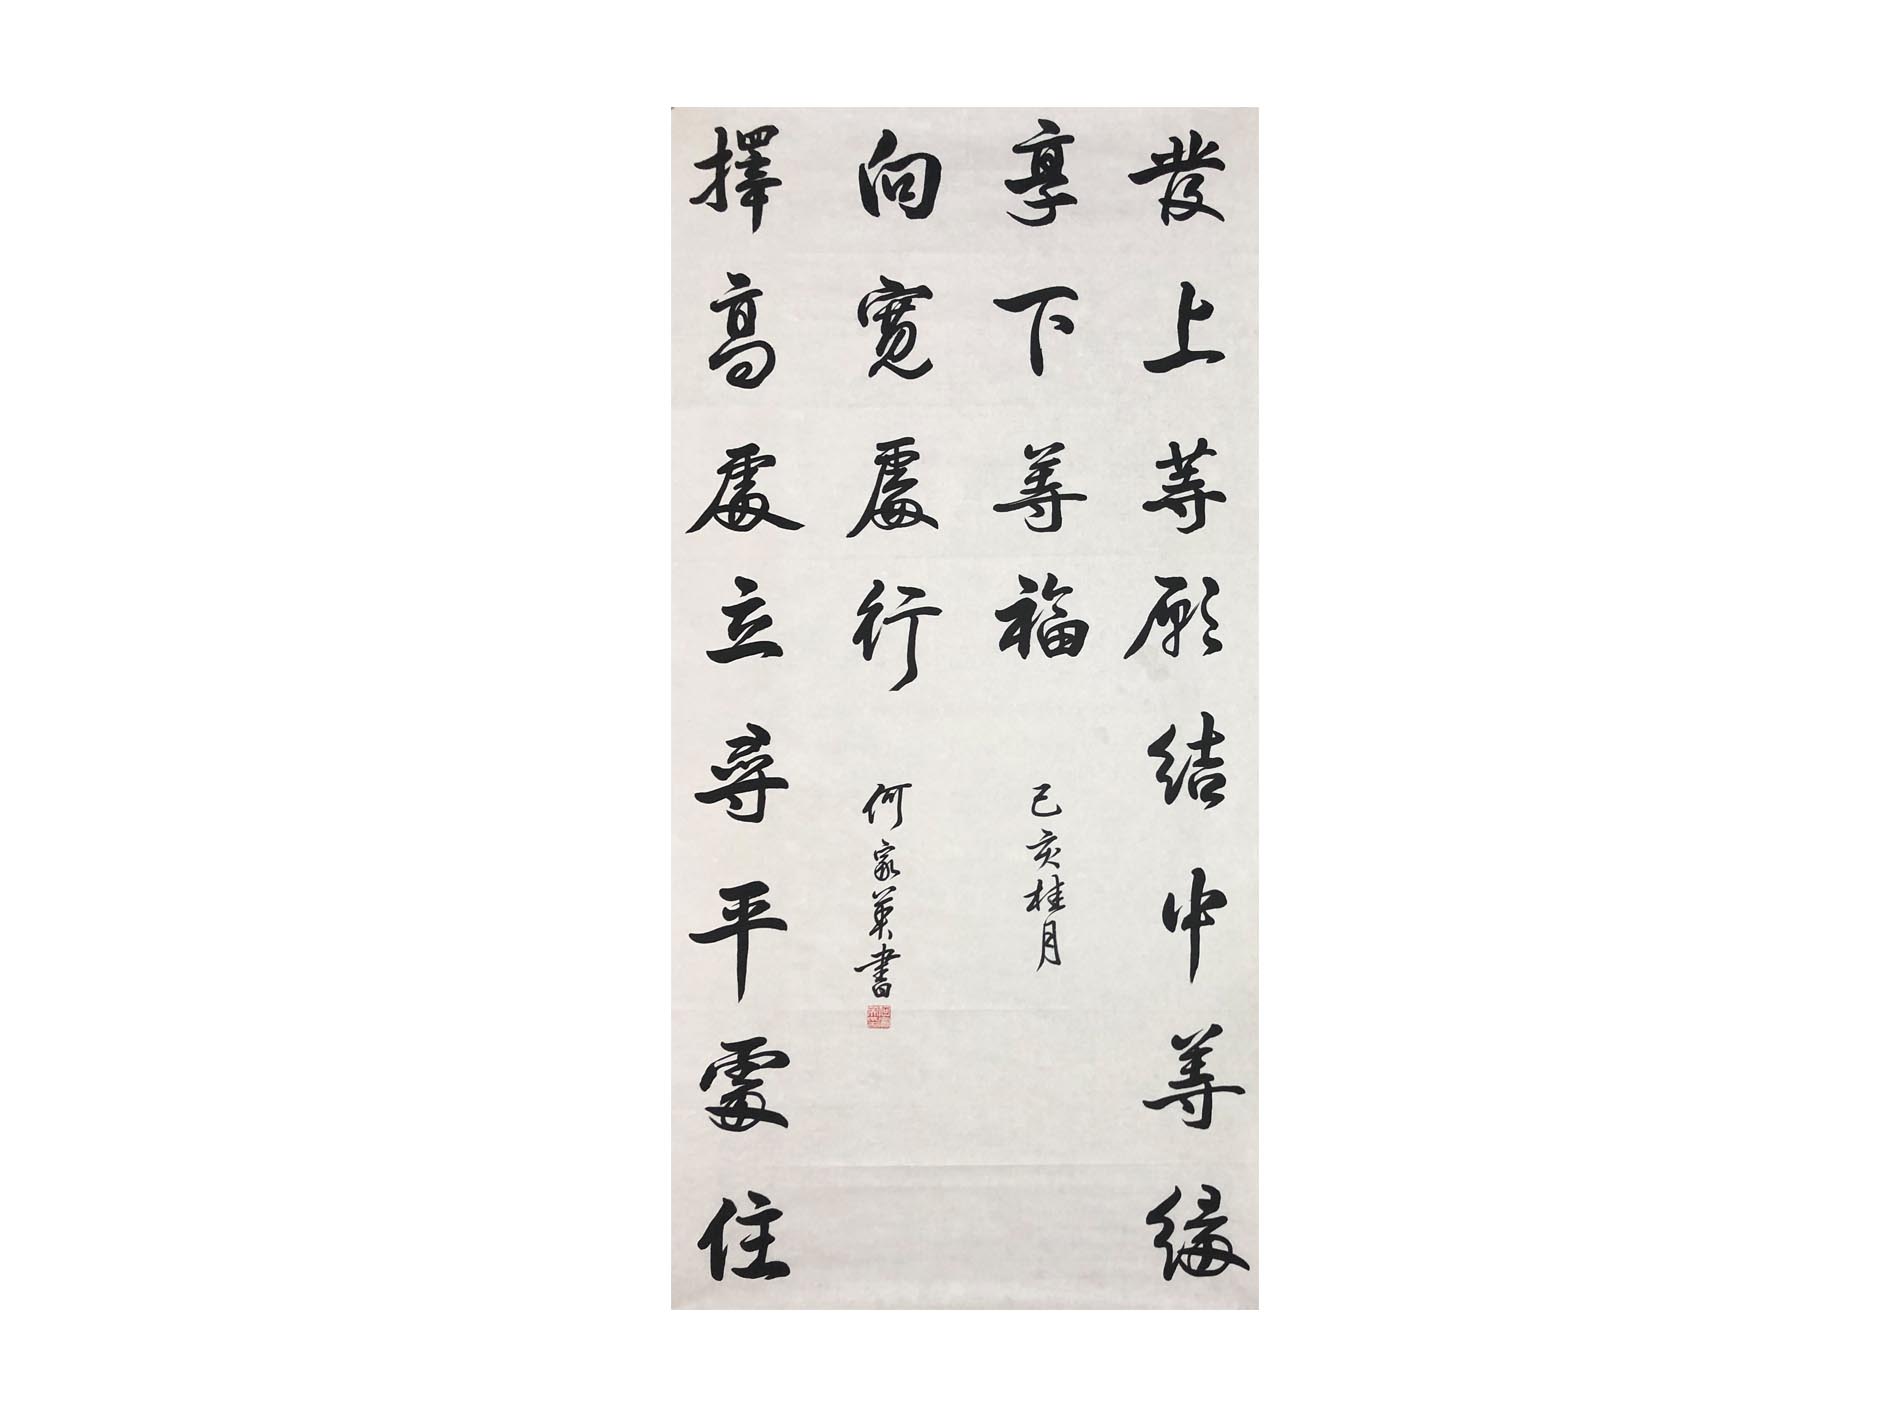 發上等願結中等緣
享下等福
己亥桂月
擇高處立尋平處住
向寬處行
何家英書